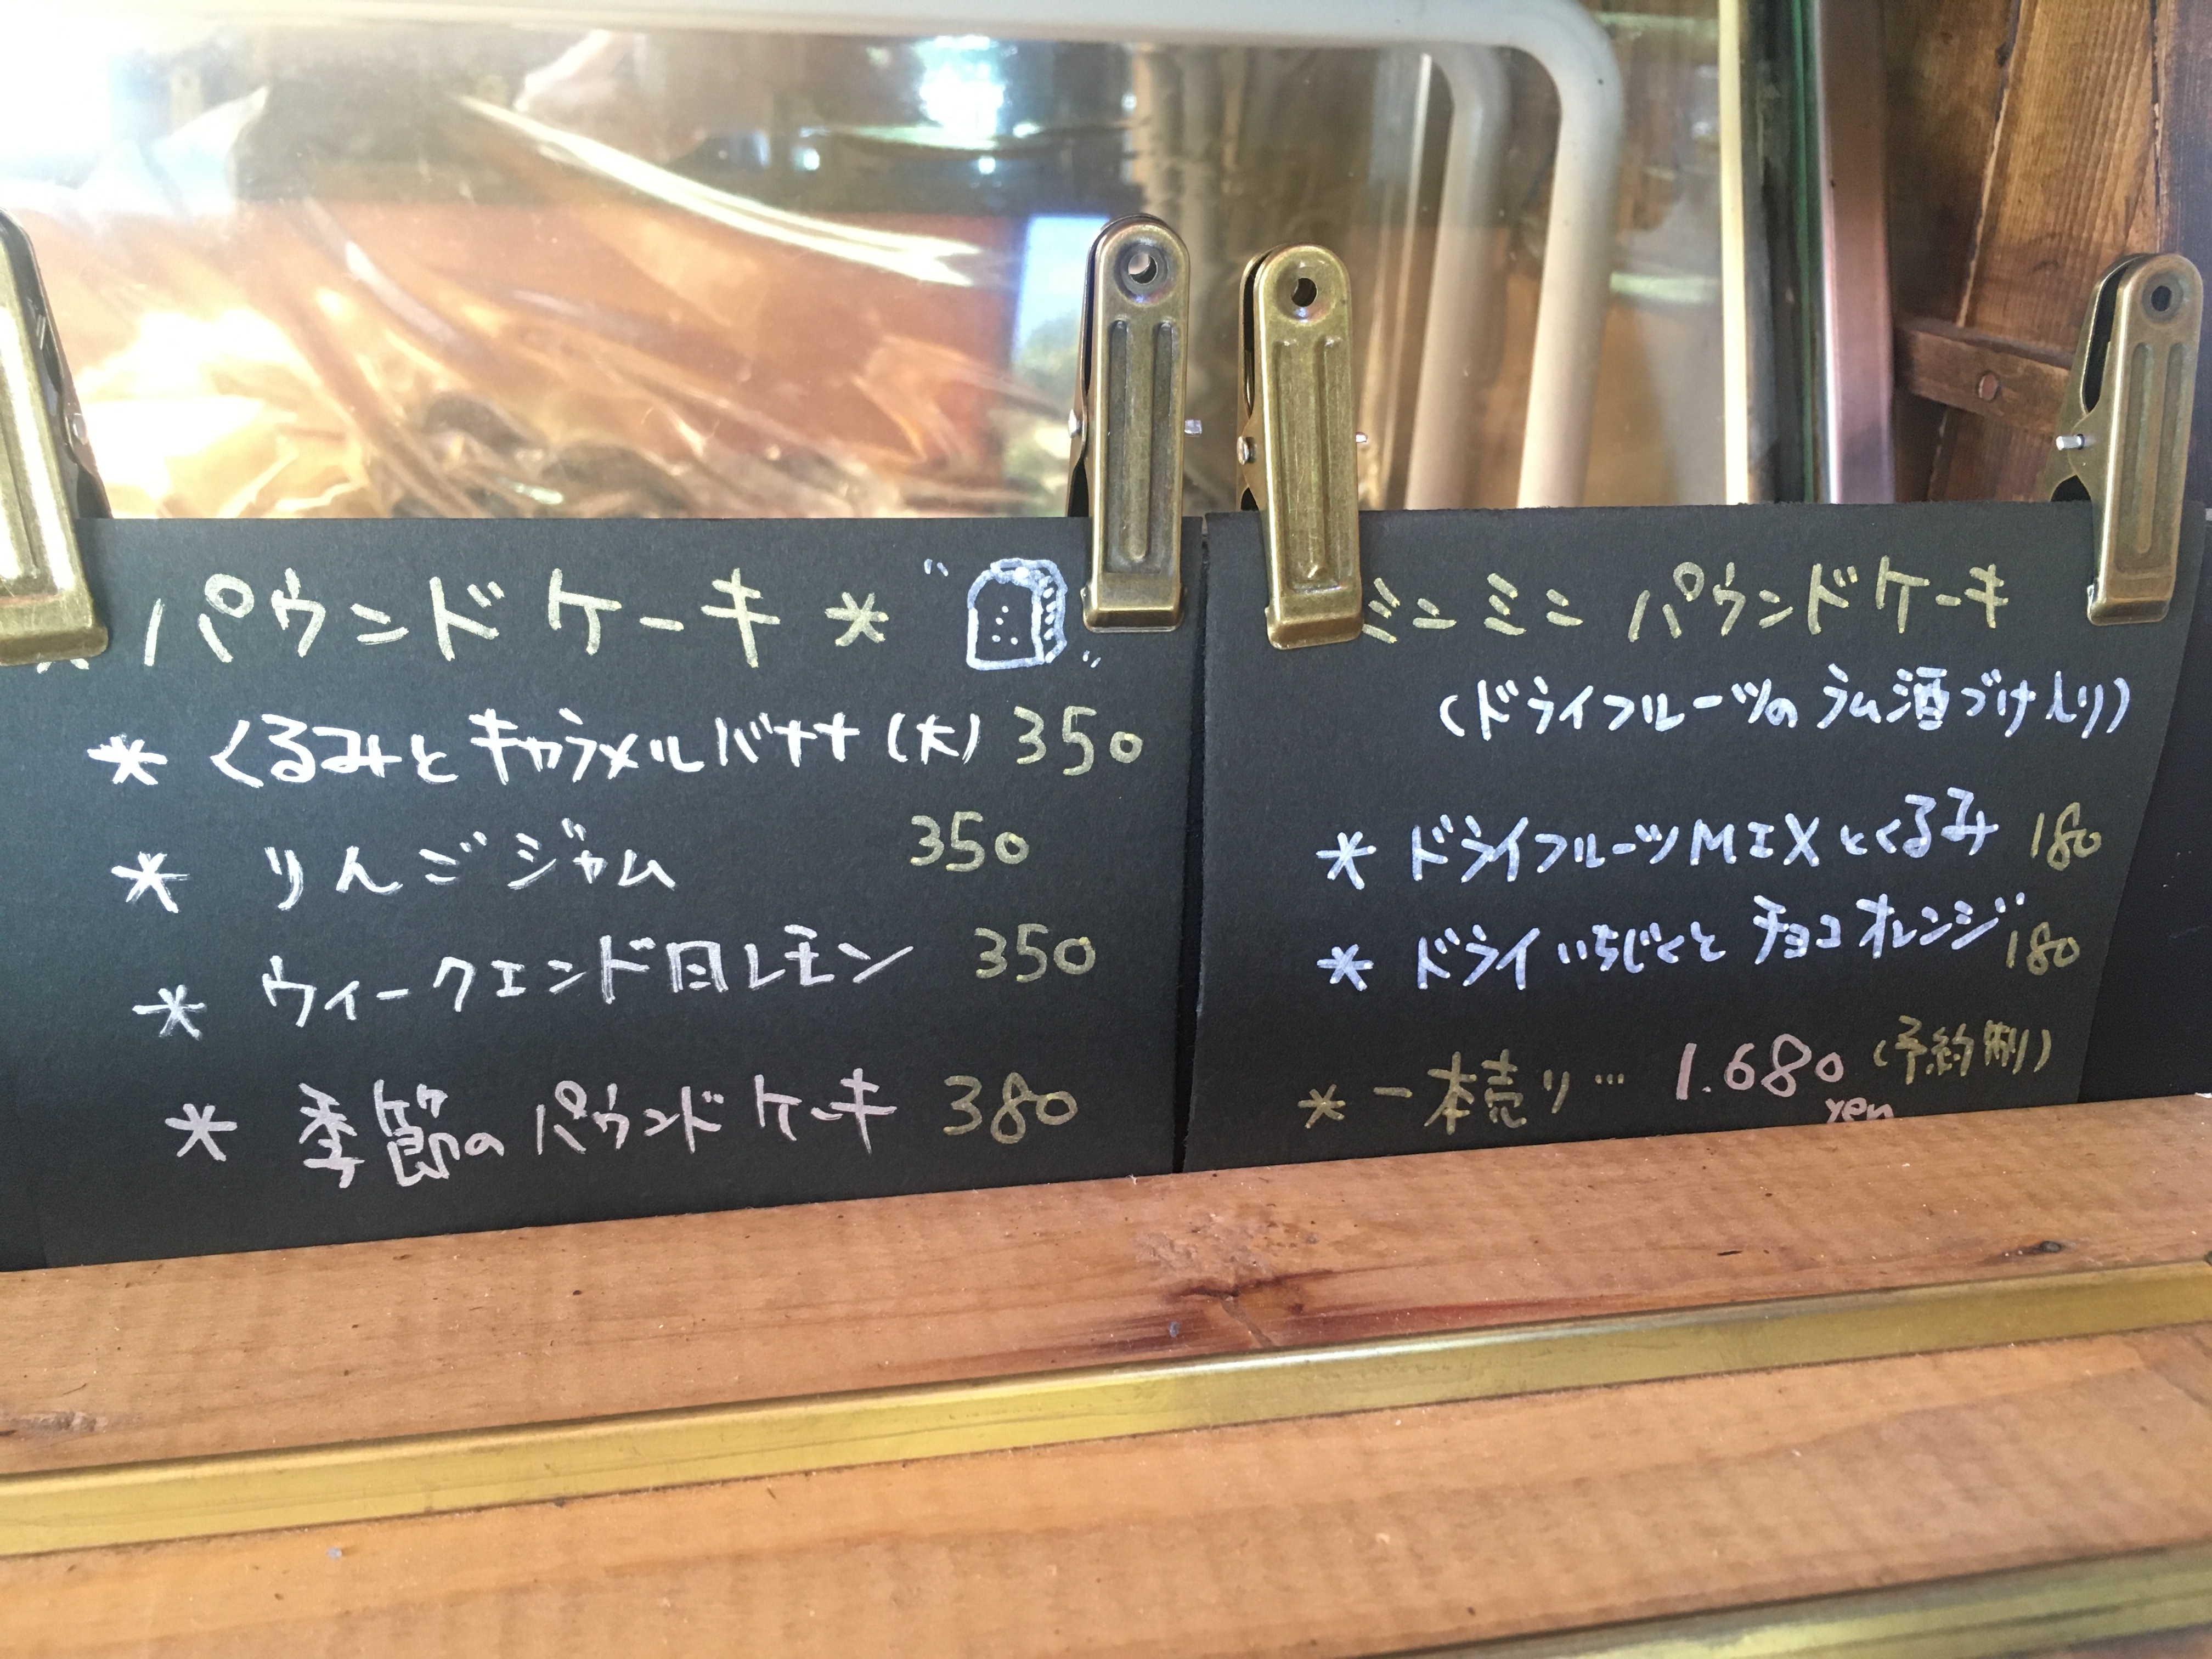 * パウンドケーキ *
* くるみとキャラメルバナナ (大) 350
* りんごジャム 350
* ウィークエンド 日レモン 350
* 季節のパウンドケーキ 380
ミニミニ パウンドケーキ
(ドライフルーツのラム酒づけ入り)
* ドライフルーツMIXとくるみ 180
* ドライいちじくとチョコオレンジ 180
* 一本売り… 1.680 yen (予約制)